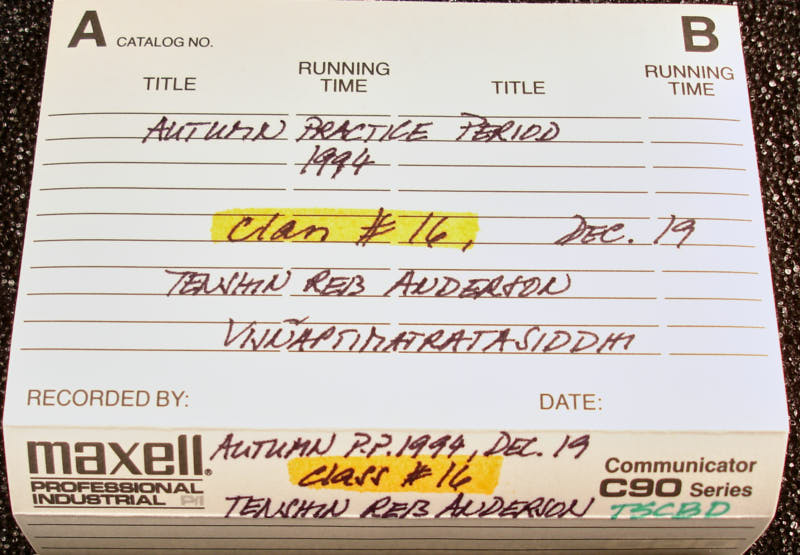 A CATALOG NO. B
TITLE RUNNING TIME TITLE RUNNING TIME
AUTUMN PRACTICE PERIOD
1994
Class #16, DEC. 19
TENSHIN REB ANDERSON
VIJÑAPTIMATRATASIDDHI
RECORDED BY: DATE:
maxell® AUTUMN P.P. 1994, DEC. 19
PROFESSIONAL INDUSTRIAL P/I Class #16 Communicator C90 Series
TENSHIN REB ANDERSON TSCBD